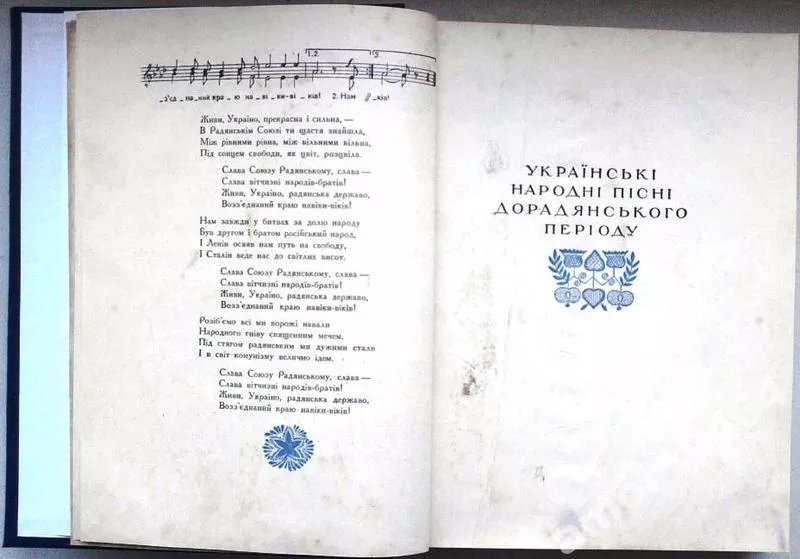 1.2.
3.
_з'єд_на_ний кра_ю на_ві_ки-ві_ків! 2. Нам //_ків!
Живи, Україно, прекрасна і сильна, —
В Радянськім Союзі ти щастя знайшла,
Між рівними рівна, між вільними вільна,
Під сонцем свободи, як цвіт, розцвіла.
Слава Союзу Радянському, слава —
Слава вітчизні народів-братів!
Живи, Україно, радянська державо,
Возз'єднаний краю навіки-віків!
Нам завжди у битвах за долю народу
Був другом і братом російський народ,
І Ленін осяяв нам путь на свободу,
І Сталін веде нас до світлих висот.
Слава Союзу Радянському, слава —
Слава вітчизні народів-братів!
Живи, Україно, радянська державо,
Возз'єднаний краю навіки-віків!
Розіб'ємо всі ми ворожі навали
Народного гніву священним мечем.
Під стягом радянським ми дужими стали
І в світ комунізму велично ідем.
Слава Союзу Радянському, слава —
Слава вітчизні народів-братів!
Живи, Україно, радянська державо,
Возз'єднаний краю навіки-віків!
УКРАЇНСЬКІ
НАРОДНІ ПІСНІ
ДОРАДЯНСЬКОГО
ПЕРІОДУ